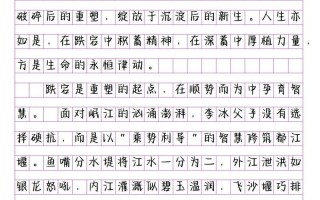 破碎后的重塑，绽放于沉淀后的新生。人生亦
如是，在跌宕中积蓄精神，在深蓄中厚植力量，
方是生命的永恒律动。
跌宕是重塑的起点，在顺势而为中孕育智
慧。面对岷江的汹涌澎湃，李冰父子没有选
择硬抗，而是以“乘势利导”的智慧修筑都江
堰。鱼嘴分水堤将江水一分为二，外江泄洪如
银龙怒吼，内江灌溉似碧玉温润，飞沙堰巧排